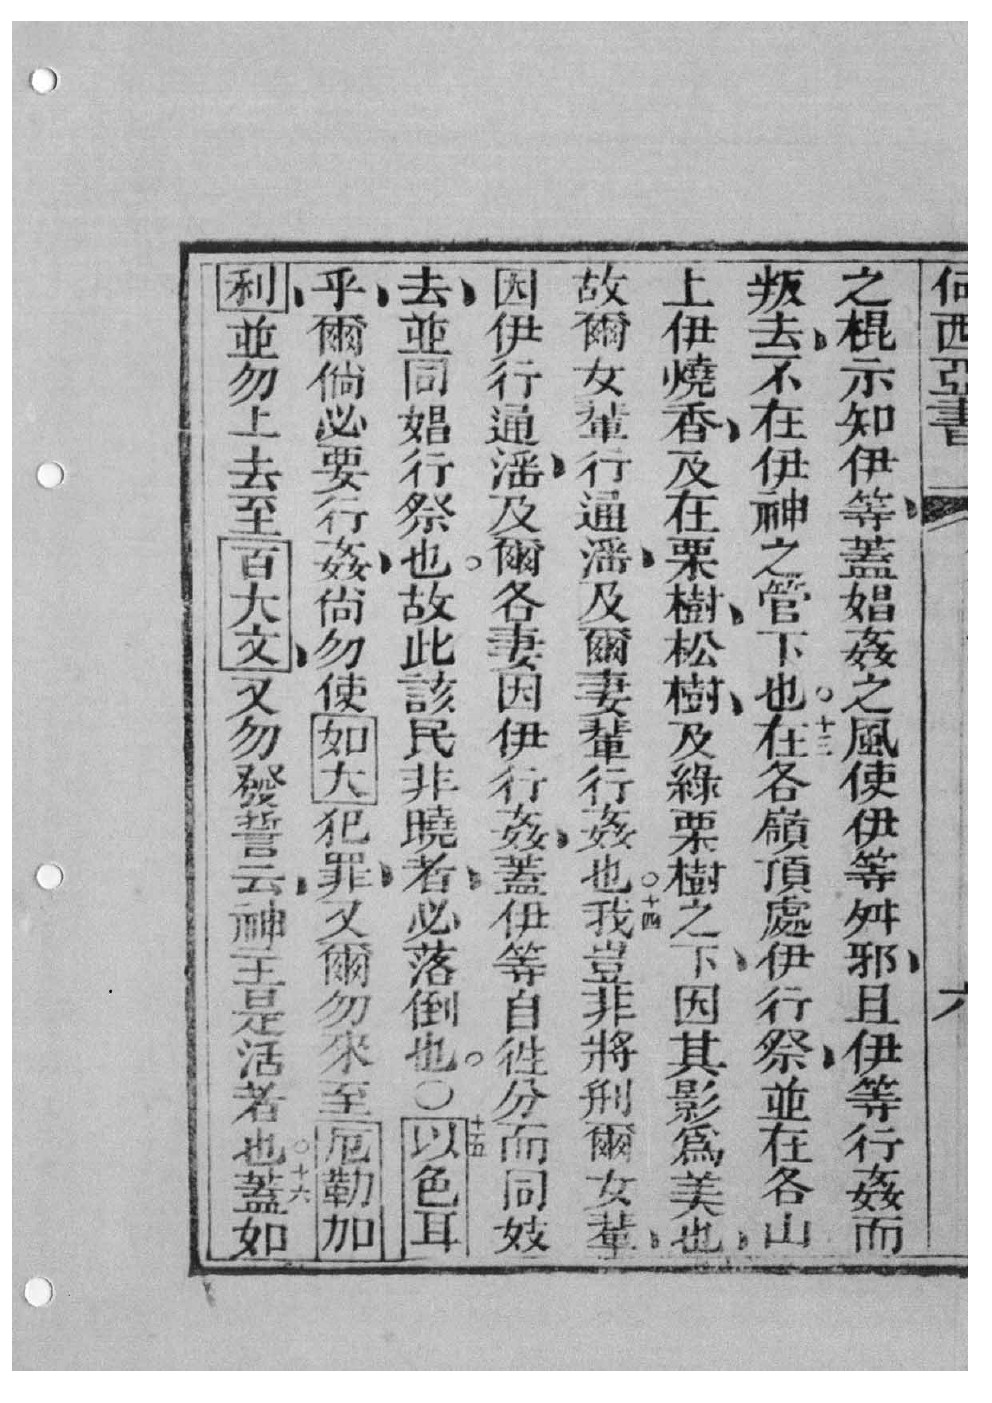 何西亞書 六
之棍示知伊等、蓋娼姦之風使伊等舛邪、且伊等行姦而
叛去、不在伊神之管下也。十三在各嶺頂處伊行祭、並在各山
上伊燒香、及在栗樹、松樹、及綠栗樹之下、因其影爲美也、
故爾女輩行通滛、及爾妻輩行姦也。十四我豈非將刑爾女輩、
因伊行通滛、及爾各妻因伊行姦、蓋伊等自徃分而同妓
去、並同娼行祭也。故此該民非曉者、必落倒也。〇十五以色耳
乎、爾倘必要行姦、尙勿使如大犯罪、又爾勿來至厄勒加
利、並勿上去至百大文、又勿發誓云、神王是活者也。十六蓋如